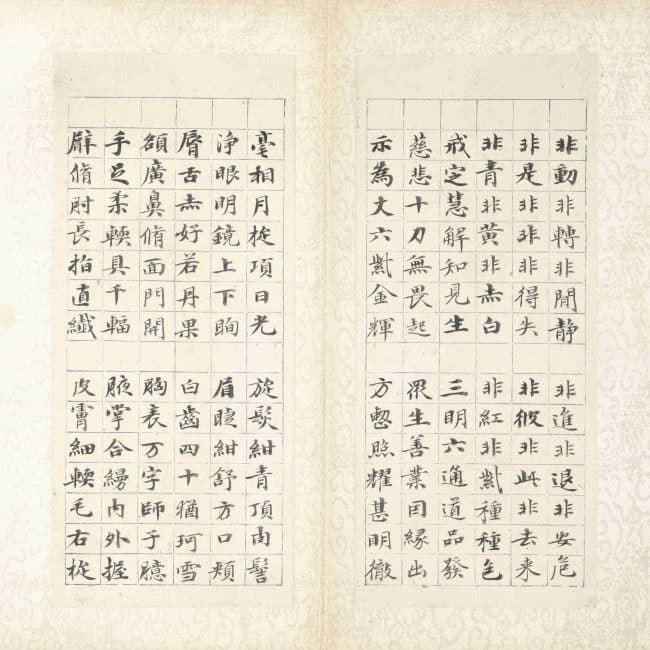 非動非轉非閒静 非進非退非安危
非是非非非得失 非彼非此非去来
非青非黄非赤白 非紅非紫種種色
戒定慧解知見生 三明六通道品發
慈悲十力無畏起 眾生善業因緣出
示為丈六紫金輝 方整照耀甚明徹
毫相月旋項日光 旋髮紺青頂肉髻
淨眼明鏡上下眴 眉睫紺舒方口頰
脣舌赤好若丹果 白齒四十猶珂雪
額廣鼻脩面門開 胸表万字師子臆
手足柔輭具千輻 腋掌合縵内外握
臂脩肘長指直纖 皮膚細輭毛右旋